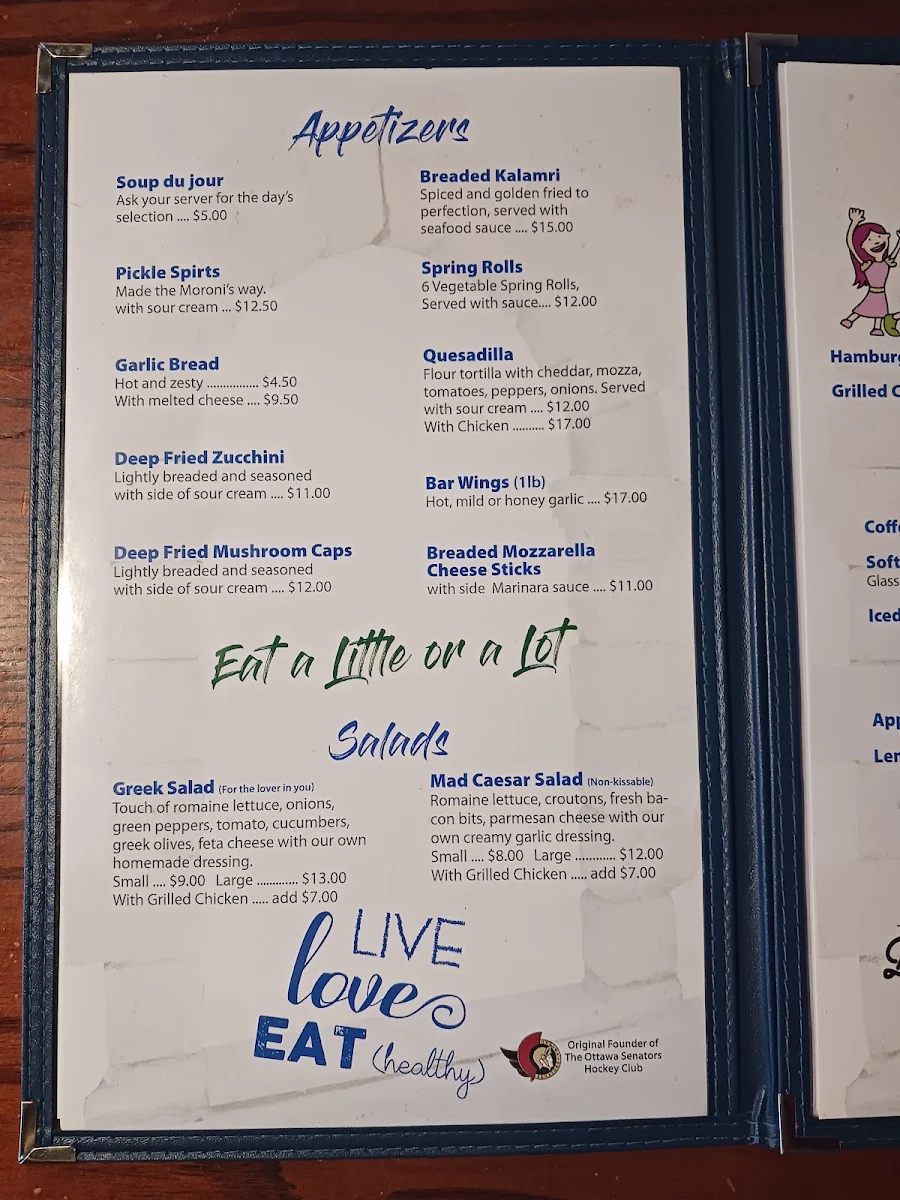 Appetizers
Soup du jour
Ask your server for the day's
selection .... $5.00
Pickle Spirts
Made the Moroni's way.
with sour cream ... $12.50
Garlic Bread
Hot and zesty ............... $4.50
With melted cheese .... $9.50
Deep Fried Zucchini
Lightly breaded and seasoned
with side of sour cream .... $11.00
Deep Fried Mushroom Caps
Lightly breaded and seasoned
with side of sour cream .... $12.00
Breaded Kalamri
Spiced and golden fried to
perfection, served with
seafood sauce .... $15.00
Spring Rolls
6 Vegetable Spring Rolls,
Served with sauce.... $12.00
Quesadilla
Flour tortilla with cheddar, mozza,
tomatoes, peppers, onions. Served
with sour cream .... $12.00
With Chicken .......... $17.00
Bar Wings (1lb)
Hot, mild or honey garlic .... $17.00
Breaded Mozzarella
Cheese Sticks
with side Marinara sauce .... $11.00
Eat a Little or a Lot
Salads
Greek Salad (For the lover in you)
Touch of romaine lettuce, onions,
green peppers, tomato, cucumbers,
greek olives, feta cheese with our own
homemade dressing.
Small .... $9.00 Large ............ $13.00
With Grilled Chicken ..... add $7.00
Mad Caesar Salad (Non-kissable)
Romaine lettuce, croutons, fresh ba-
con bits, parmesan cheese with our
own creamy garlic dressing.
Small .... $8.00 Large ............ $12.00
With Grilled Chicken ..... add $7.00
LIVE
love
EAT (healthy)
Original Founder of
The Ottawa Senators
Hockey Club
Hamburg
Grilled C
Coff
Soft
Glass
Iced
App
Lem